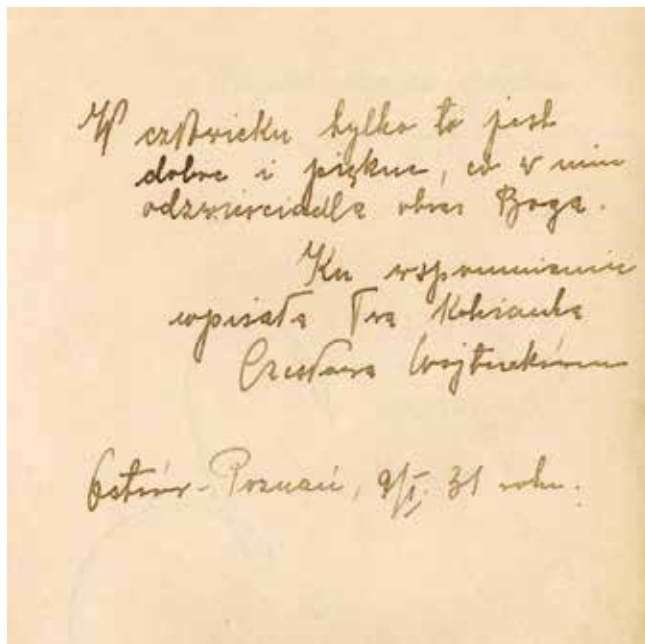 W człowieku tylko to jest
dobre i piękne, co w nim
odzwierciadla obraz Boga.
Ku wspomnieniu
wpisała Twa Koleżanka
Czesława
Ostrów-Poznań, 9/I. 31 roku.